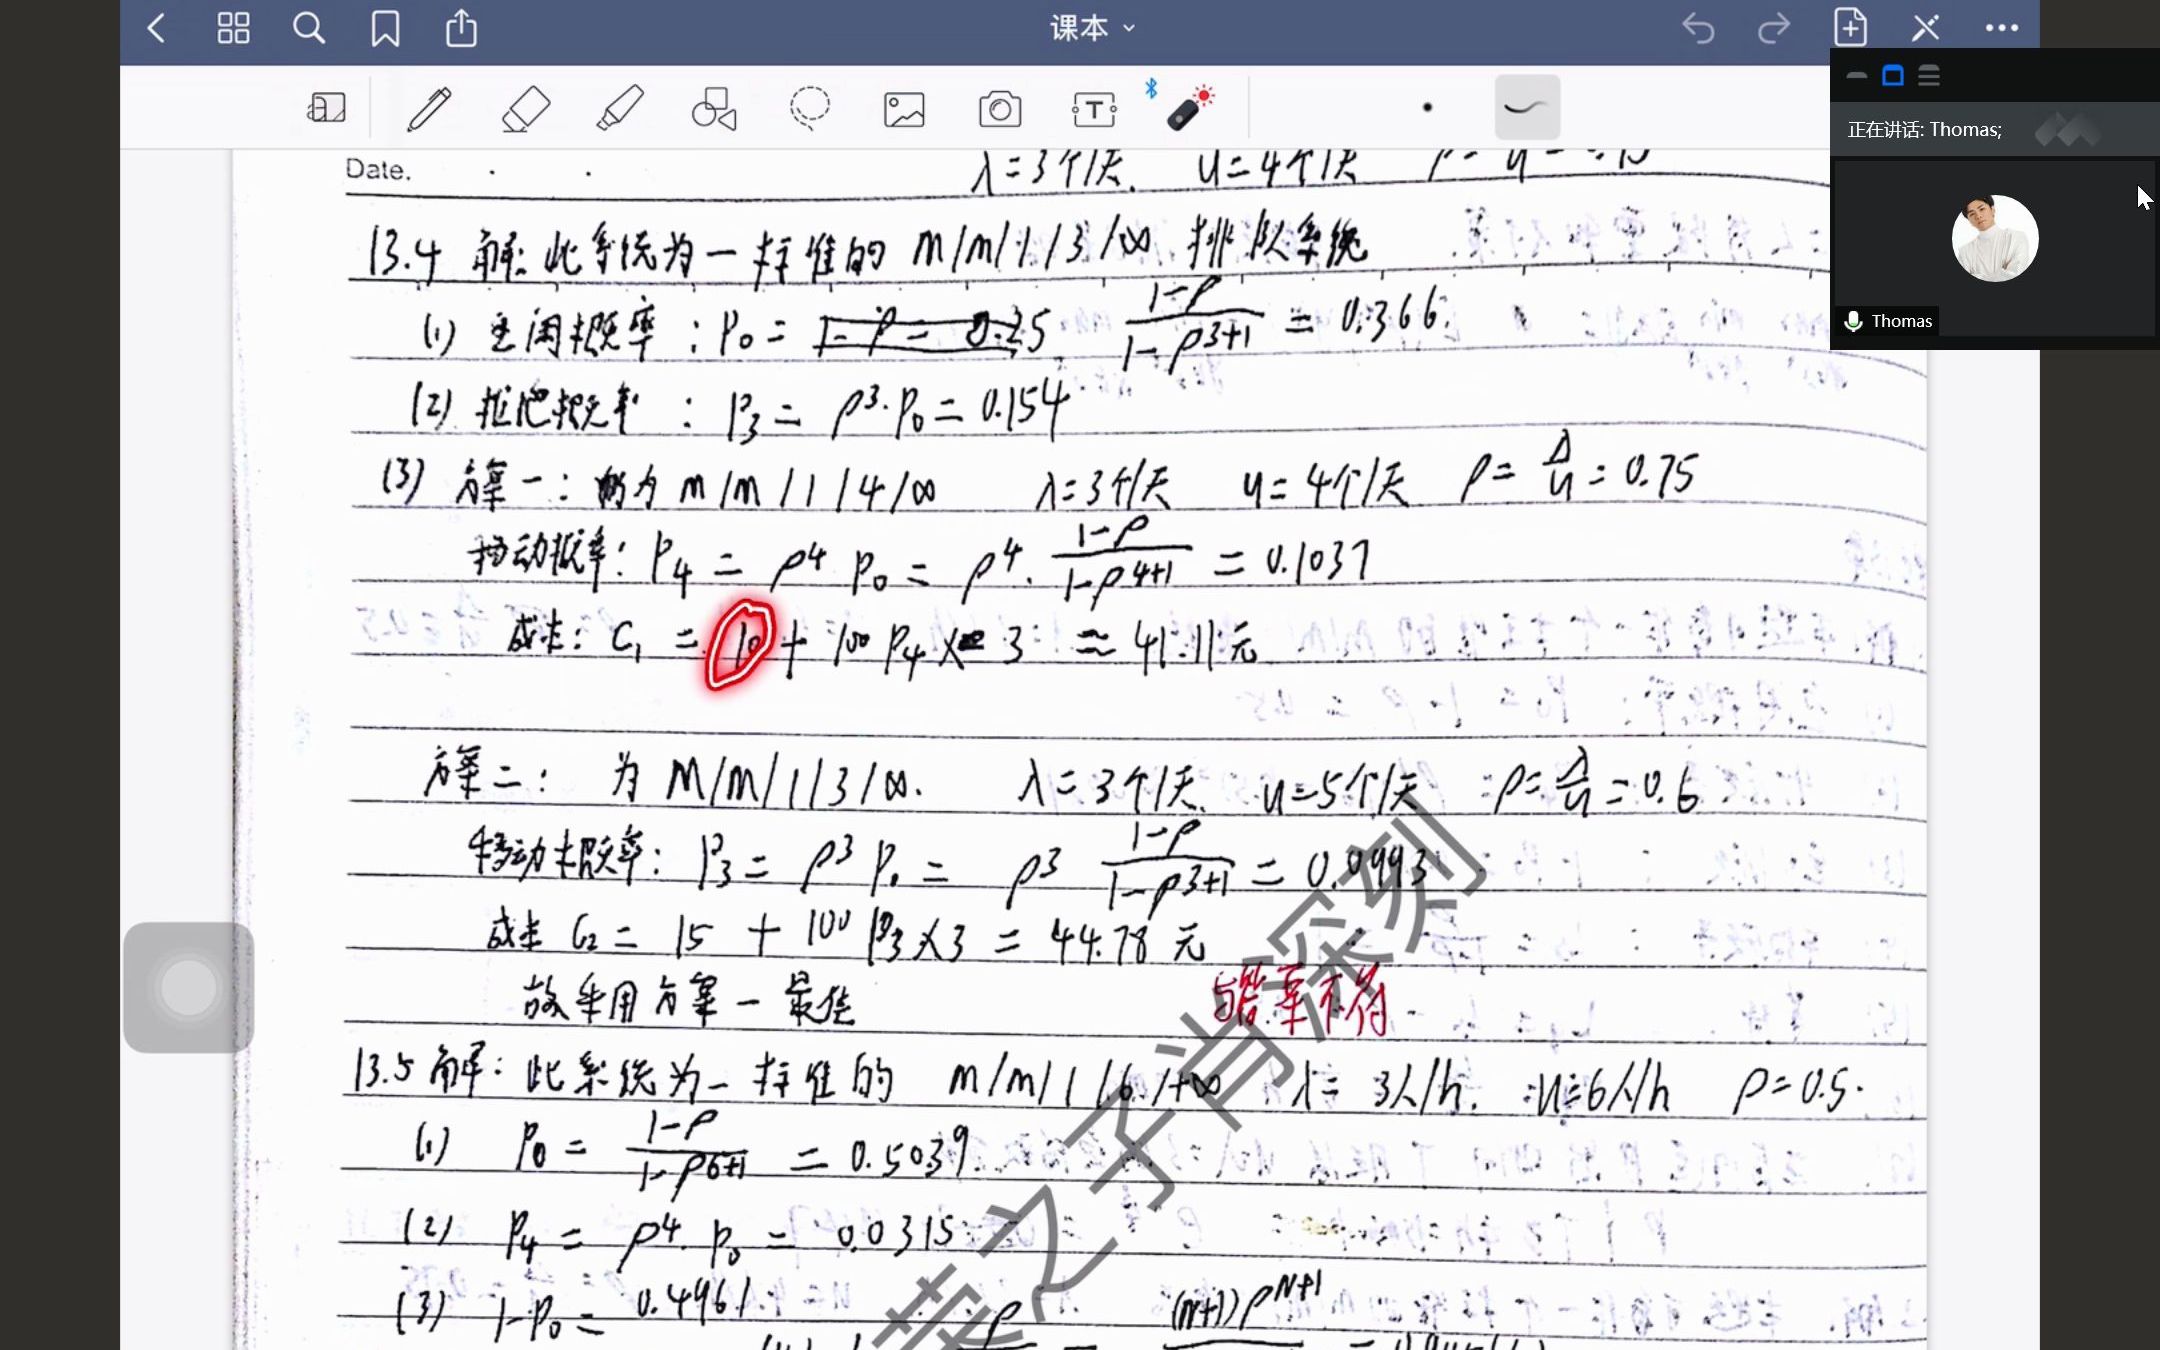 课本
正在讲话: Thomas;
Thomas
Date.
λ=3个/天. u=4个/天
13.4 解: 此系统为一标准的 M/M/1/3/∞ 排队系统
(1) 空闲概率: P₀ = 1-ρ = 0.25 (1-ρ)/(1-ρ³⁺¹) = 0.366.
(2) 拒绝概率: P₃ = ρ³·P₀ = 0.154
(3) 方案一: 仍为 M/M/1/4/∞ λ=3个/天 u=4个/天 ρ= λ/u = 0.75
P₄ = ρ⁴ P₀ = ρ⁴·(1-ρ)/(1-ρ⁴⁺¹) = 0.1037
成本: C₁ = 10 + 100 P₄ × 3 ≈ 41.11元
方案二: 为 M/M/1/3/∞. λ=3个/天 u=5个/天 ρ= λ/u =0.6
P₃ = ρ³ P₀ = ρ³ (1-ρ)/(1-ρ³⁺¹) = 0.0993
成本 C₂ = 15 + 100 P₃×3 = 44.78 元
故采用方案一最佳 与答案不符
13.5 解: 此系统为一标准的 M/M/1/6/+∞ λ= 3人/h. u=6人/h ρ=0.5.
(1) P₀ = (1-ρ)/(1-ρ⁶⁺¹) = 0.5039
(2) P₄ = ρ⁴ P₀ = 0.0315
(3) 1-P₀ = 0.4961
(N+1)ρᴺ⁺¹
菜之子肖深刻